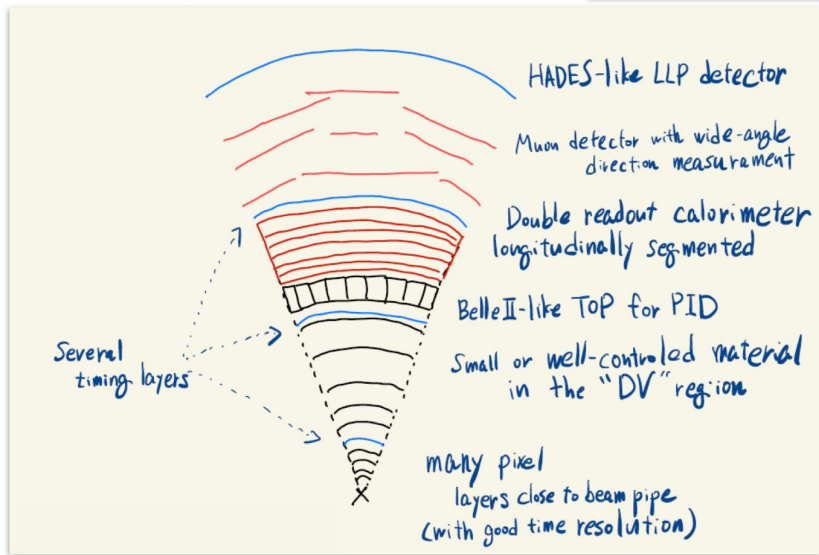 HADES-like LLP detector
Muon detector with wide-angle
direction measurament
Double readout calorimeter
longitudinally segmented
BelleII-like TOP for PID
Several
timing layers
Small or well-controled material
in the "DV" region
many pixel
layers close to beam pipe
(with good time resolution)